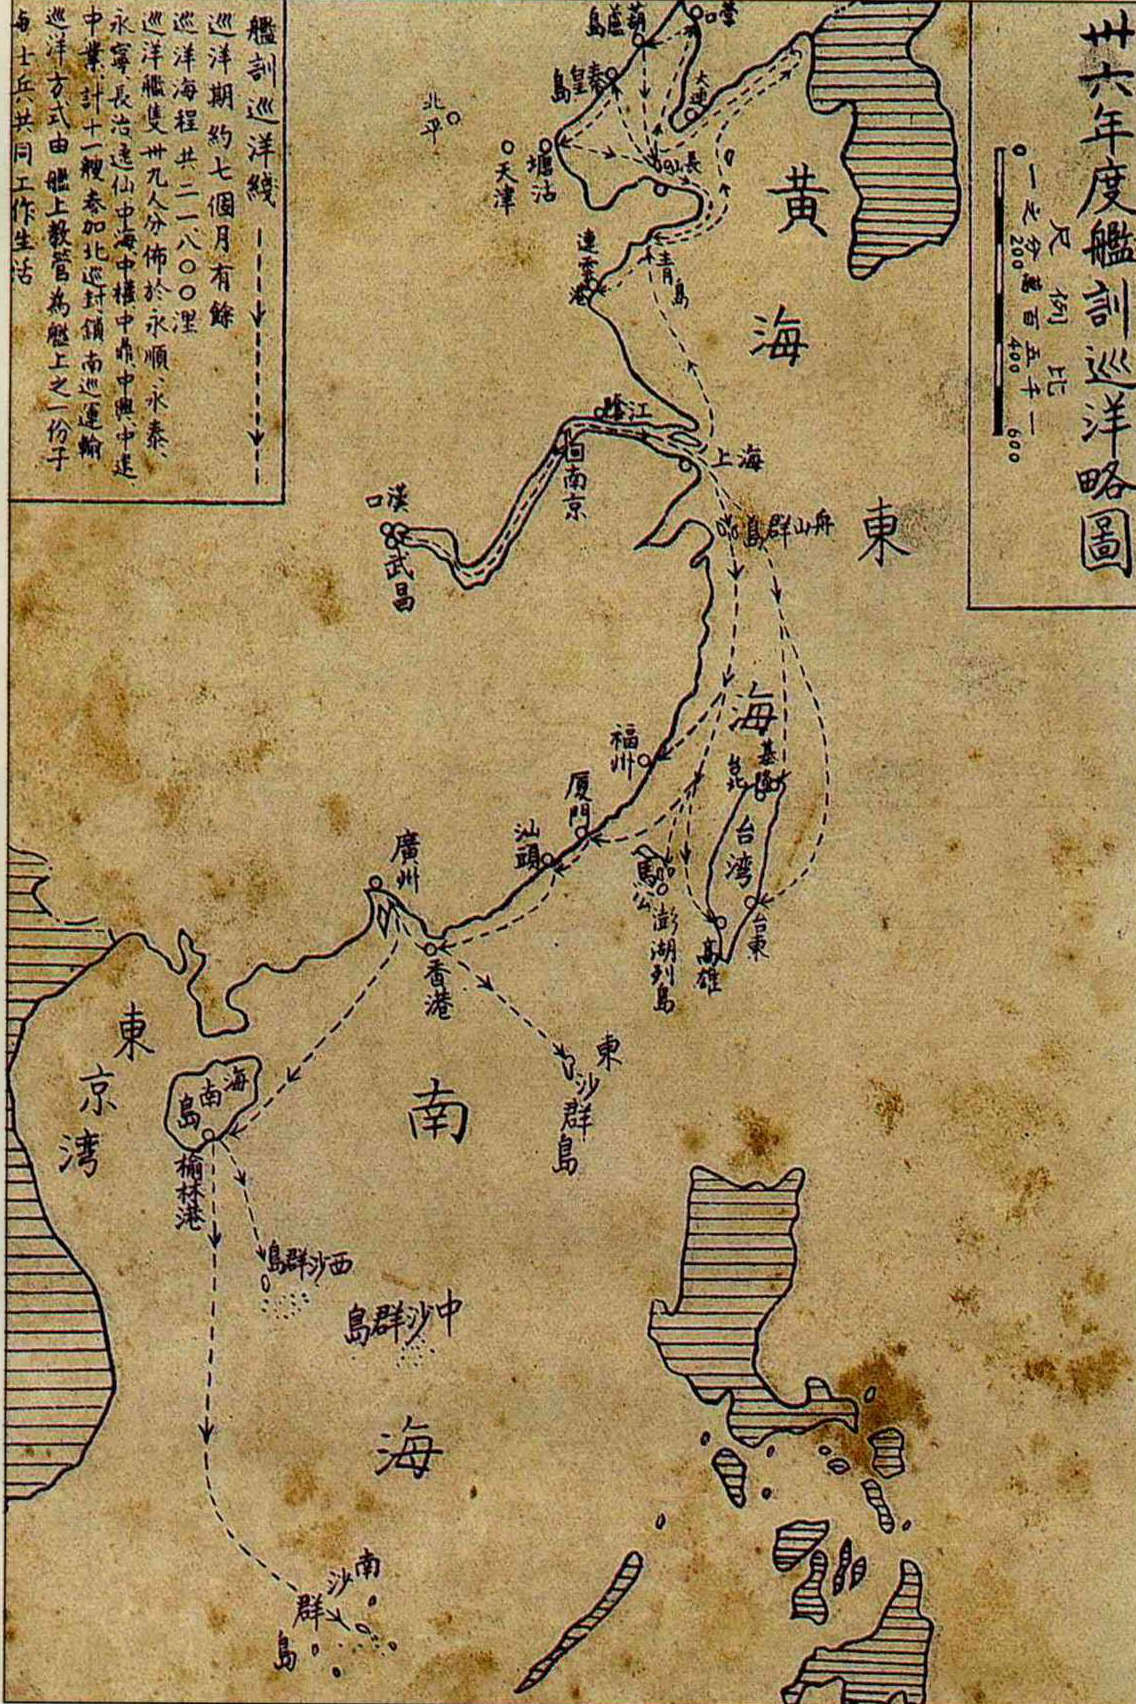 卅六年度艦訓巡洋略圖
比例尺
一千五百萬分之一
0 200 400 600
艦訓巡洋綫
巡洋期約七個月有餘
巡洋海程共二一八〇〇浬
巡洋艦隻卅九人分佈於永順、永泰、
永寧、長治、逺仙、中海、中權、中鼎、中興、中建
中業、計十一艘参加北巡封鎖南巡運輸
巡洋方式由艦上教管為艦上之一份子
與士兵共同工作生活
營口
葫蘆島
秦皇島
大連
北平
天津
塘沽
長山
黃海
青島
連雲港
江陰
南京
上海
漢口
武昌
舟山群島
東海
福州
基隆
台北
台湾
廈門
汕頭
馬公
澎湖列島
高雄
台東
廣州
香港
東沙群島
東京湾
海南島
榆林港
南海
西沙群島
中沙群島
南沙群島